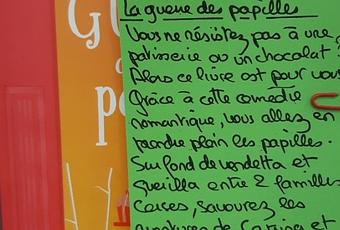 La guerre des papilles
Vous ne résistez pas à une
patisserie ou un chocolat ?
Alors ce livre est pour vous
Grâce à cette comédie
romantique, vous allez en
prendre plein les papilles.
Sur fond de vendetta et
guerilla entre 2 familles
corses, savourez les
aventures de
et
GU
pa